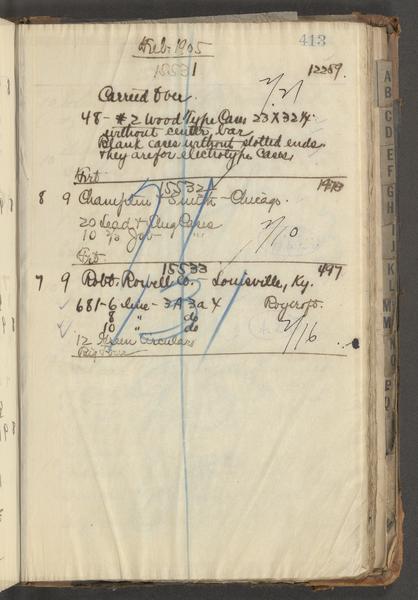 Feb. 1905
413
15531
12289.
2/21
Carried Over.
48 - #2 Wood Type Cases 23 X 32 ¼.
without center bar
Blank cases without slotted ends
They are for electrotype Cases
Frt
15532
8 9 Champlin & Smith - Chicago.
20 Lead & Slug Cases
10 ⅔ Job " "
2/10
Frt
15533
497
7 9 Robt. Rowell Co. - Louisville, Ky.
681 - 6 line - 3A 3a X Roycroft.
8 " do
10 " do
2/16
12 Green Circulars
Big Four
A
B
C
D
E
F
G
H
I
J
K
L
M
M
N
O
P
Q